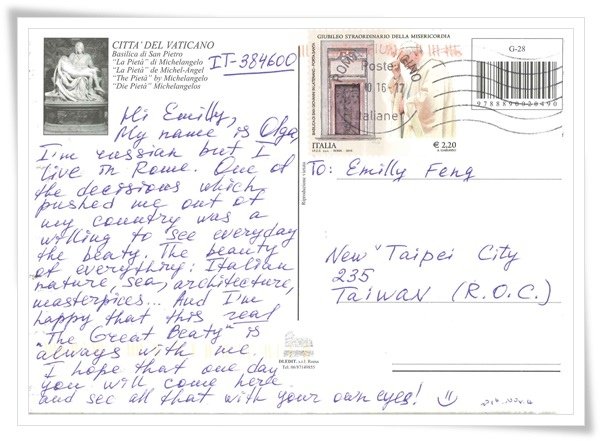 CITTA' DEL VATICANO
Basilica di San Pietro
"La Pietà" di Michelangelo
"La Pietà" de Michel-Angel
"The Pietà" by Michelangelo
"Die Pietà" Michelangelos
IT-384600
Hi Emilly,
My name is Olga,
I'm russian but I
live in Rome. One of
the decisions which
pushed me out of
my country was a
willing to see everyday
the beaty. The beauty
of everything: Italian
nature, sea, architecture,
masterpices... And I'm
happy that this real
"The Great Beaty" is
always with me.
I hope that one day
you will come here
and see all that with your own eyes!
GIUBILEO STRAORDINARIO DELLA MISERICORDIA
ITALIA
€ 2,20
Poste
Italiane
G-28
9788890020490
To: Emilly Feng
New Taipei City
235
Taiwan (R.O.C.)
Riproduzione vietata
BLEDIT. s.r.l. Roma
Tel. 06/87149855